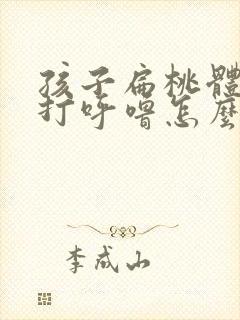 孩子扁桃體
打呼嚕怎麼
李成山